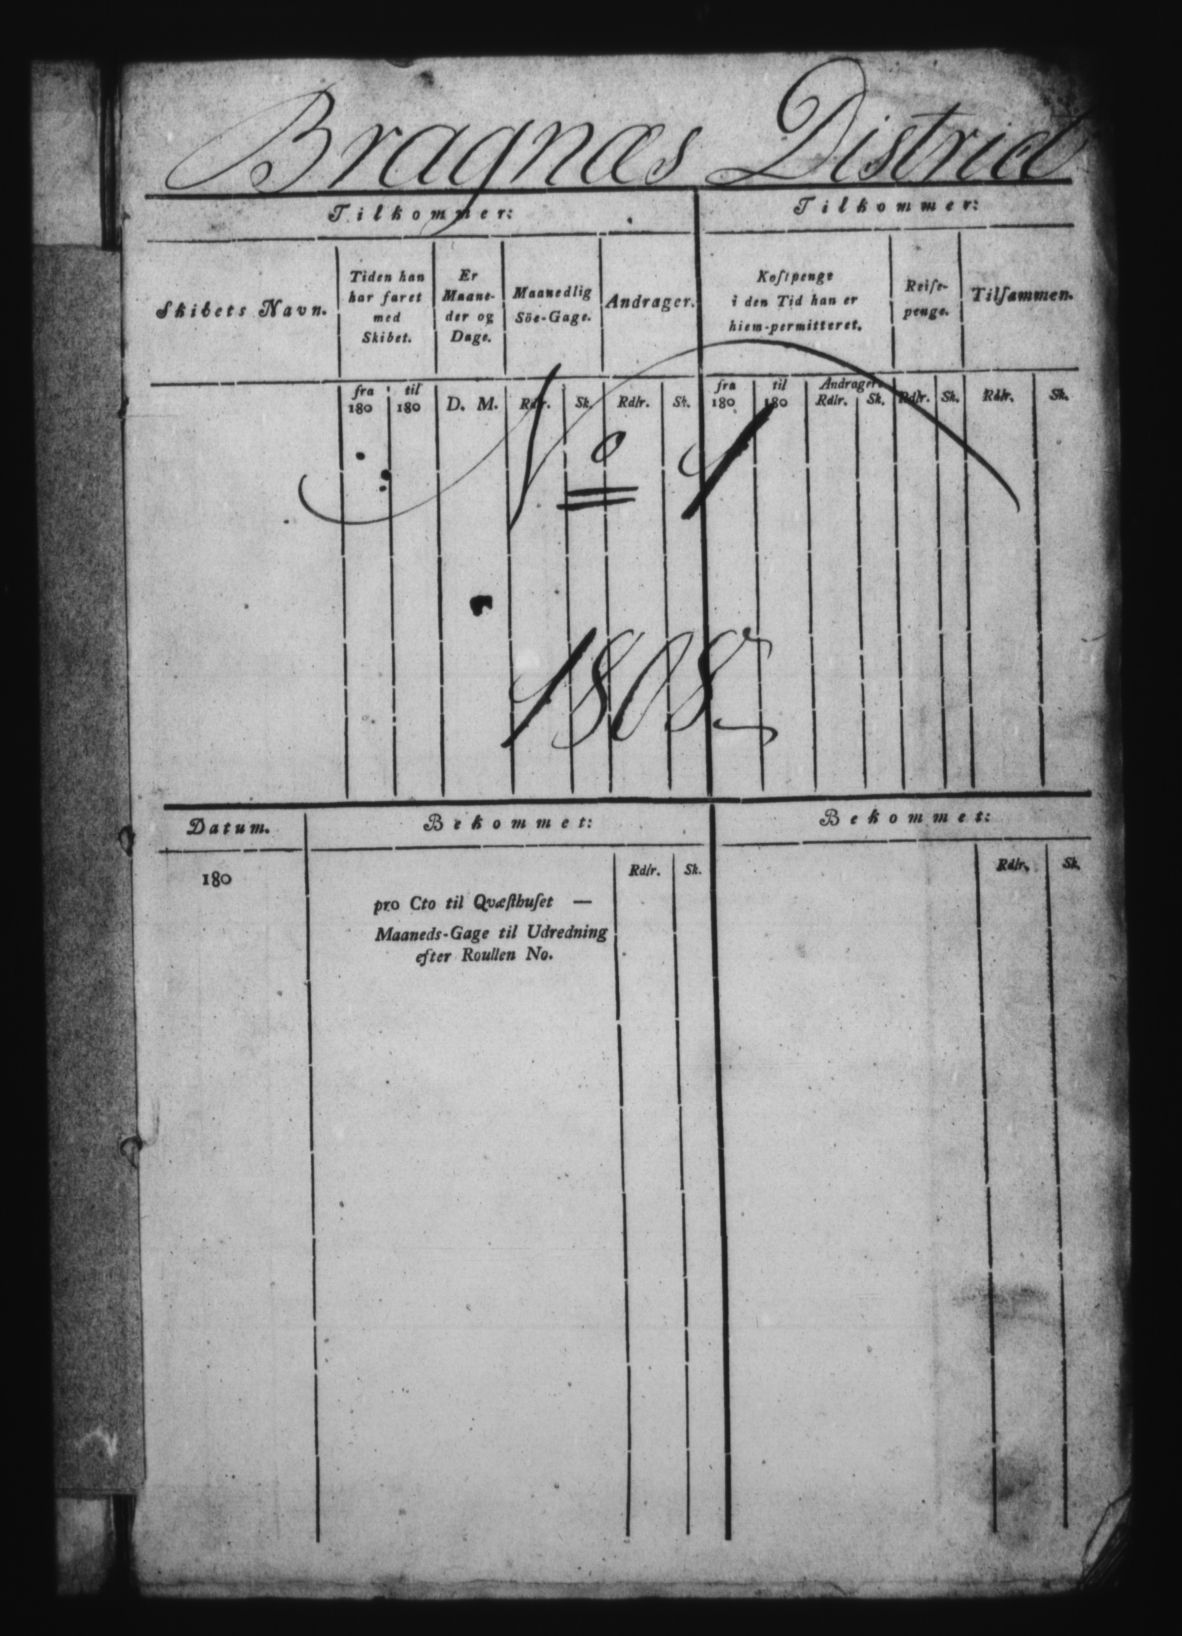 Bragnæs District
Tilkommer: Tilkommer:
Skibets Navn. Tiden han har faret med Skibet. Er Maaneder og Dage. Maanedlig Söe-Gage. Andrager. Koſtpenge i den Tid han er hiem-permitteret. Reiſe-penge. Tilſammen.
fra 180 til 180 D. M. Rdlr. Sk. Rdlr. Sk. fra 180 til 180 Andrager. Rdlr. Sk. Rdlr. Sk. Rdlr. Sk.
No 1
1808
Datum. Bekommet: Bekommet:
180 Rdlr. Sk. Rdlr. Sk.
pro Cto til Qvæſthuſet —
Maaneds-Gage til Udredning
efter Roullen No.